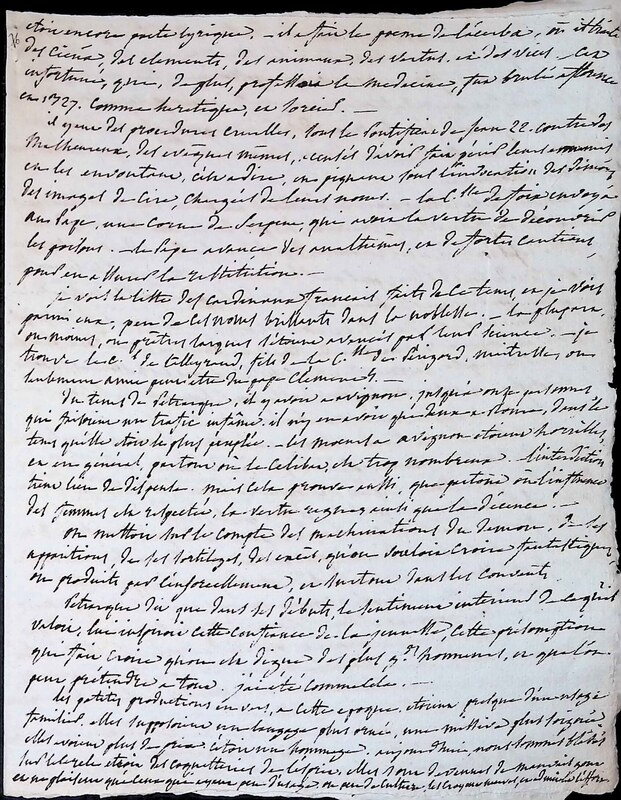 étoit encore poete lyrique, - il a fait le poeme de l'acerba, où il traite
des cieux, des elements, des animaux, des vertus, et des vices. - cet
infortuné, qui, de plus, professoit la medecine, fut brulé a florence
en 1327. comme heretique, et sorcier. -
il y eut des procedures cruelles, sous le Pontificat de Jean 22. contre des
malheureux, des evêques mêmes, accusés d'avoir fait périr leurs ennemis
en les envoutant, c'est a dire, en piquant sous l'invocation des démons
des images de cire, chargées de leurs noms. - la C.sse de foix envoya
au Pape, une corne de serpent, qui avoit la vertu de découvrir
les poisons. - le Pape avança des anathèmes, et de fortes cautions
pour en assurer la restitution. -
je vois la liste des cardinaux français faits de ce tems, et je vois
parmi eux, peu de ces noms brillants dans la noblesse. - la plupart
ou moines, ou prêtres s'étoient avancés par leur science. - je
trouve le C. de talleyrand, fils de la C.sse de Périgord, maitresse, ou
seulement amie peut etre du pape Clement 5. -
Du tems de Petrarque, il y avoit a avignon, jusqu'a onze personnes
qui faisoient un trafic infâme. il n'y en avoit que deux a Rome, dans le
tems qu'elle étoit le plus peuplée. - les moeurs a avignon etoient horribles,
et en général, partout où le celibat, est trop nombreux. - l'interdiction
tient lieu de dispense. mais cela prouve aussi, que partout où l'influence
des femmes est respectée, la vertu regne ainsi que la décence. -
on mettoit sur le compte des machinations du demon, de ses
apparitions, de ses sortileges, des excès, qu'on vouloit croire fantastiques
ou produits par l'ensorcellement, et surtout dans les couvents.
Petrarque dit que dans ses débuts, le sentiment intérieur de ce qu'il
valoit, lui inspiroit cette confiance de la jeunesse, cette présomption
qui fait croire qu'on est digne des plus g.ds hommes, et que l'on
peut prétendre a tout. j'ai été comme cela. -
les petites productions en vers, a cette epoque, etoient presque d'un usage
familier. elles supposoient un langage plus orné, une missive plus soignée
elles avoient plus de prix. c'étoit un hommage. aujourd'hui, nous sommes blasés
sur le cercle etroit des coquetteries de l'esprit, elles sont devenues de mauvais gout
et ne plaisent qu'a ceux qui ayant peu d'usage, ou peu de culture, les croyent